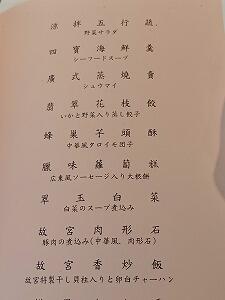 涼拌五行蔬
野菜サラダ
四寶海鮮羹
シーフードスープ
廣式蒸燒賣
シュウマイ
翡翠花枝餃
いかと野菜入り蒸し餃子
蜂巢芋頭酥
中華風タロイモ団子
臘味蘿蔔糕
広東風ソーセージ入り大根餅
翠玉白菜
白菜のスープ煮込み
故宮肉形石
豚肉の煮込み(中華風、肉形石)
故宮香炒飯
故宮特製干し貝柱入りと卵白チャーハン